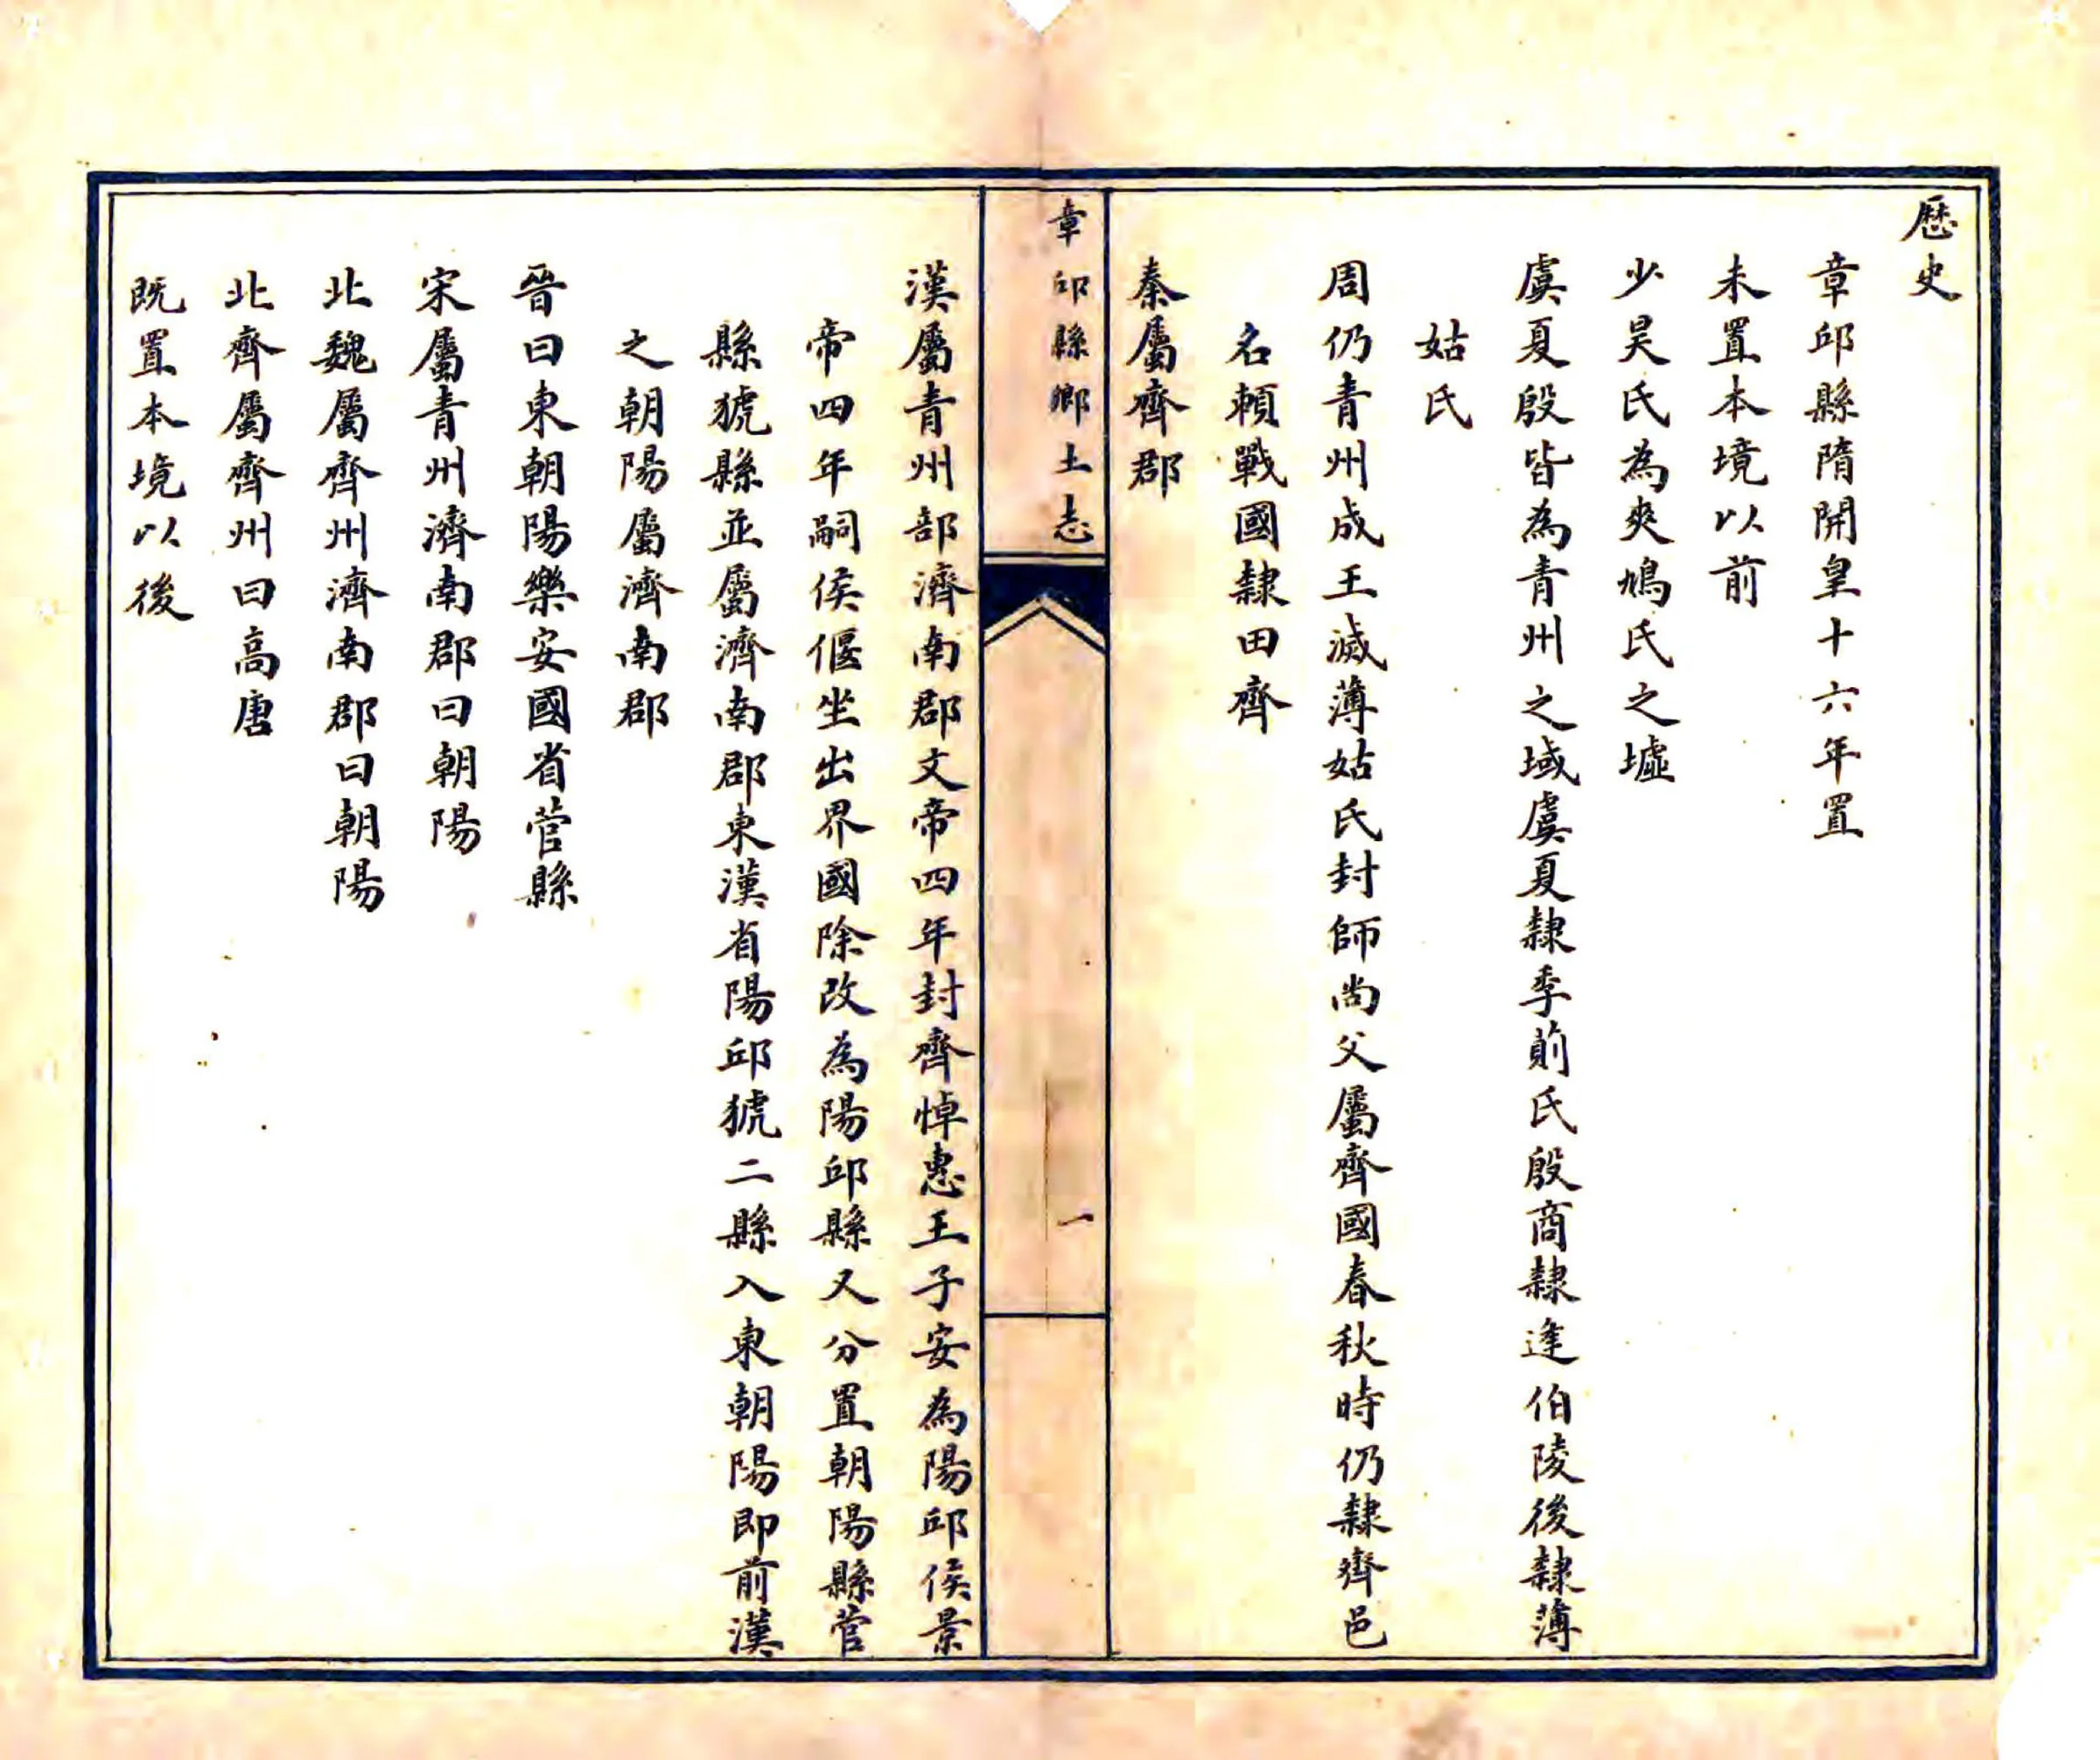 歷史
章邱縣隋開皇十六年置
未置本境以前
少昊氏為爽鳩氏之墟
虞夏殷皆為青州之域虞夏隸季萴氏殷商隸逄伯陵後隸薄
姑氏
周仍青州成王滅薄姑氏封師尚父屬齊國春秋時仍隸齊邑
名賴戰國隸田齊
秦屬齊郡
章邱縣鄉土志
一
漢屬青州部濟南郡文帝四年封齊悼惠王子安為陽邱侯景
帝四年嗣侯偃坐出界國除改為陽邱縣又分置朝陽縣菅
縣猇縣並屬濟南郡東漢省陽邱猇二縣入東朝陽即前漢
之朝陽屬濟南郡
晉曰東朝陽樂安國省菅縣
宋屬青州濟南郡曰朝陽
北魏屬齊州濟南郡曰朝陽
北齊屬齊州曰高唐
既置本境以後